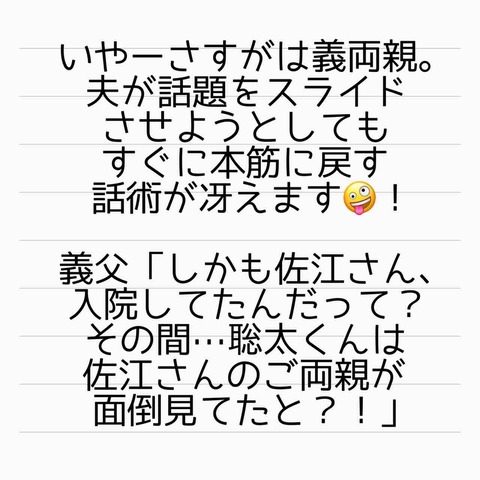 いやーさすがは義両親。
夫が話題をスライド
させようとしても
すぐに本筋に戻す
話術が冴えます🤪！
義父「しかも佐江さん、
入院してたんだって？
その間…聡太くんは
佐江さんのご両親が
面倒見てたと？！」